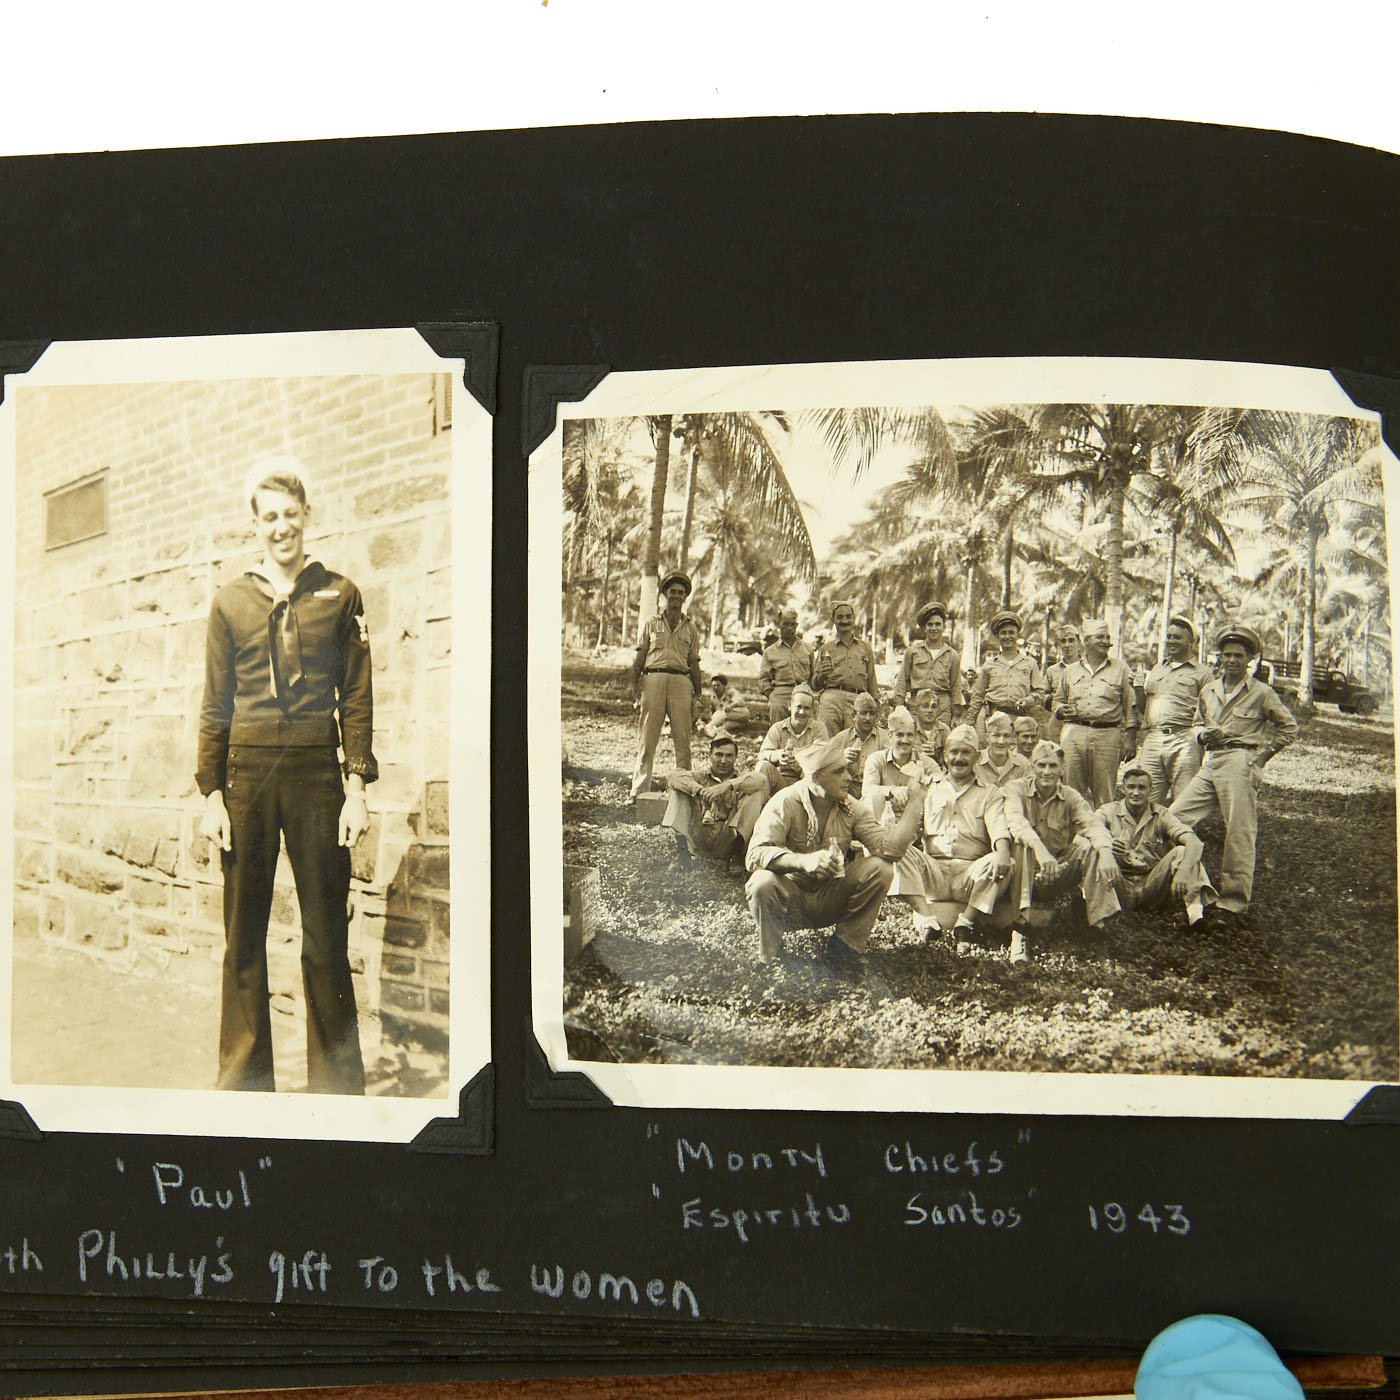 'Paul"
"Monty Chiefs"
"Espiritu Santos" 1943
Philly's gift to the women